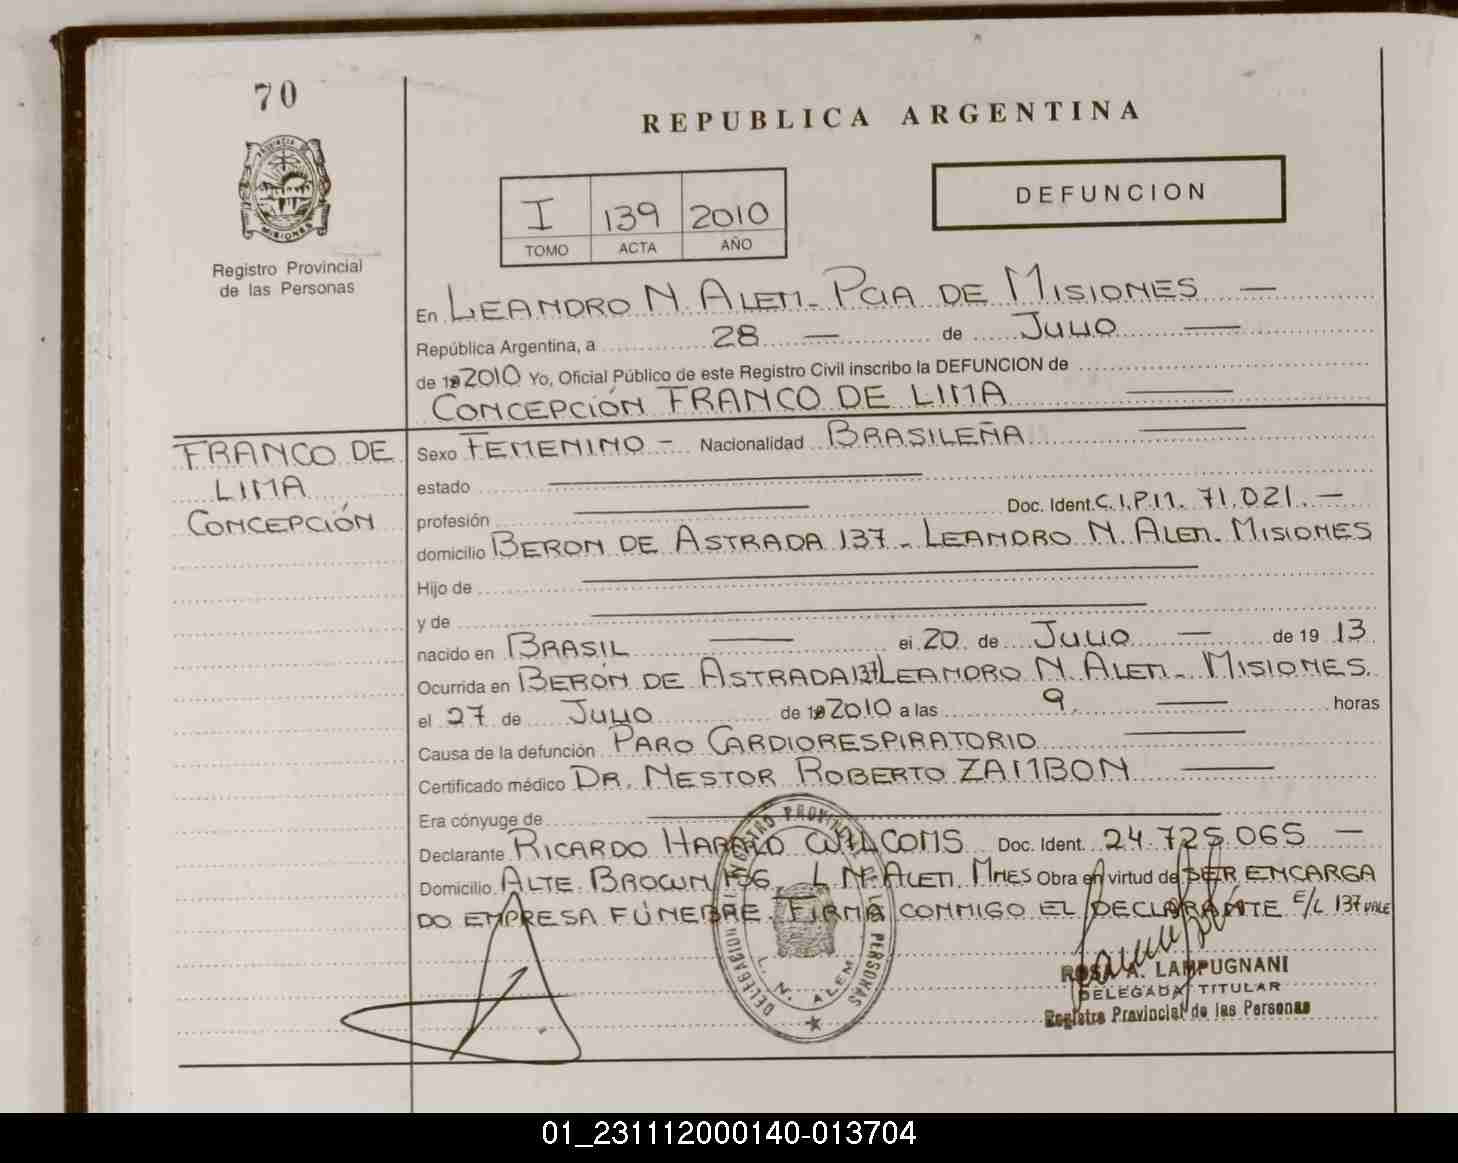 70
PROVINCIA DE
MISIONES
Registro Provincial
de las Personas
REPUBLICA ARGENTINA
I 139 2010
TOMO ACTA AÑO
DEFUNCION
En LEANDRO N. ALEM - PCIA DE MISIONES —
República Argentina, a 28 — de JULIO —
de 19 2010 Yo, Oficial Público de este Registro Civil inscribo la DEFUNCION de
CONCEPCIÓN FRANCO DE LIMA —
FRANCO DE
LIMA
CONCEPCIÓN
Sexo FEMENINO - Nacionalidad BRASILEÑA —
estado —
profesión — Doc. Ident. C.I.P.M. 71.021. —
domicilio BERON DE ASTRADA 137 - LEANDRO N. ALEM - MISIONES
Hijo de —
y de —
nacido en BRASIL — el 20 de JULIO — de 19 13
Ocurrida en BERÓN DE ASTRADA 137 LEANDRO N. ALEM - MISIONES.
el 27 de JULIO de 19 2010 a las 9 — horas
Causa de la defunción PARO CARDIORESPIRATORIO —
Certificado médico DR. NESTOR ROBERTO ZAMBON —
Era cónyuge de —
Declarante RICARDO Doc. Ident. 24.725.065 —
Domicilio ALTE. BROWN L N. ALEM. MNES Obra en virtud de SER ENCARGA
DO EMPRESA FÚNEBRE. FIRMA CONMIGO EL DECLARANTE E/L 137 VALE
DELEGACION REGISTRO PROVINCIAL DE LAS PERSONAS
L. N. ALEM
ROSA A. LAMPUGNANI
DELEGADA TITULAR
Registro Provincial de las Personas
01_231112000140-013704